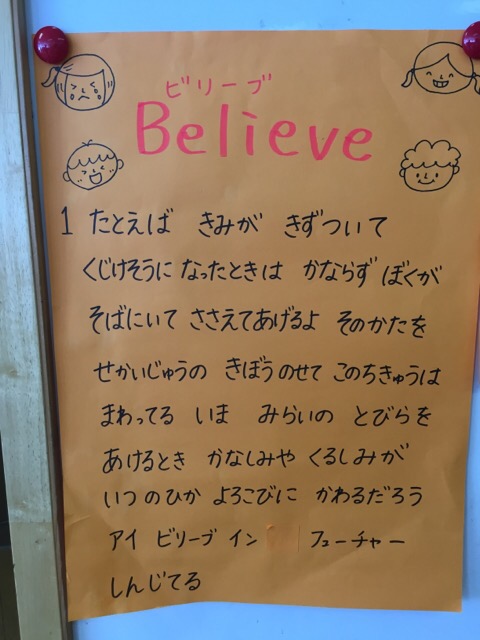 ビリーブ
Believe
1 たとえば きみが きずついて
くじけそうに なったときは かならず ぼくが
そばにいて ささえてあげるよ そのかたを
せかいじゅうの きぼうのせて このちきゅうは
まわってる いま みらいの とびらを
あけるとき かなしみや くるしみが
いつのひか よろこびに かわるだろう
アイ ビリーブ イン フューチャー
しんじてる